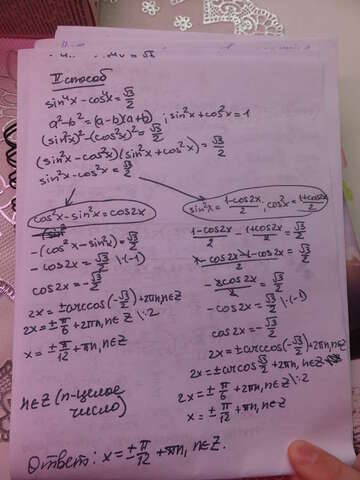 II способ
sin⁴x - cos⁴x = √3/2
a² - b² = (a-b)(a+b) ; sin²x + cos²x = 1
(sin²x)² - (cos²x)² = √3/2
(sin²x - cos²x)(sin²x + cos²x) = √3/2
sin²x - cos²x = √3/2
cos²x - sin²x = cos2x
-(cos²x - sin²x) = √3/2
-cos2x = √3/2 \·(-1)
cos2x = -√3/2
2x = ±arccos(-√3/2) + 2πn, n∈Z
2x = ±π/6 + 2πn, n∈Z \:2
x = ±π/12 + πn, n∈Z
n∈Z (n-целое
число)
sin²x = (1-cos2x)/2 ; cos²x = (1+cos2x)/2
(1-cos2x)/2 - (1+cos2x)/2 = √3/2
(1-cos2x-1-cos2x)/2 = √3/2
-2cos2x/2 = √3/2
-cos2x = √3/2 \·(-1)
cos2x = -√3/2
2x = ±arccos(-√3/2) + 2πn, n∈Z
2x = ±arccos √3/2 + 2πn, n∈Z
2x = ±π/6 + 2πn, n∈Z \:2
x = ±π/12 + πn, n∈Z
Ответ: x = ±π/12 + πn, n∈Z.